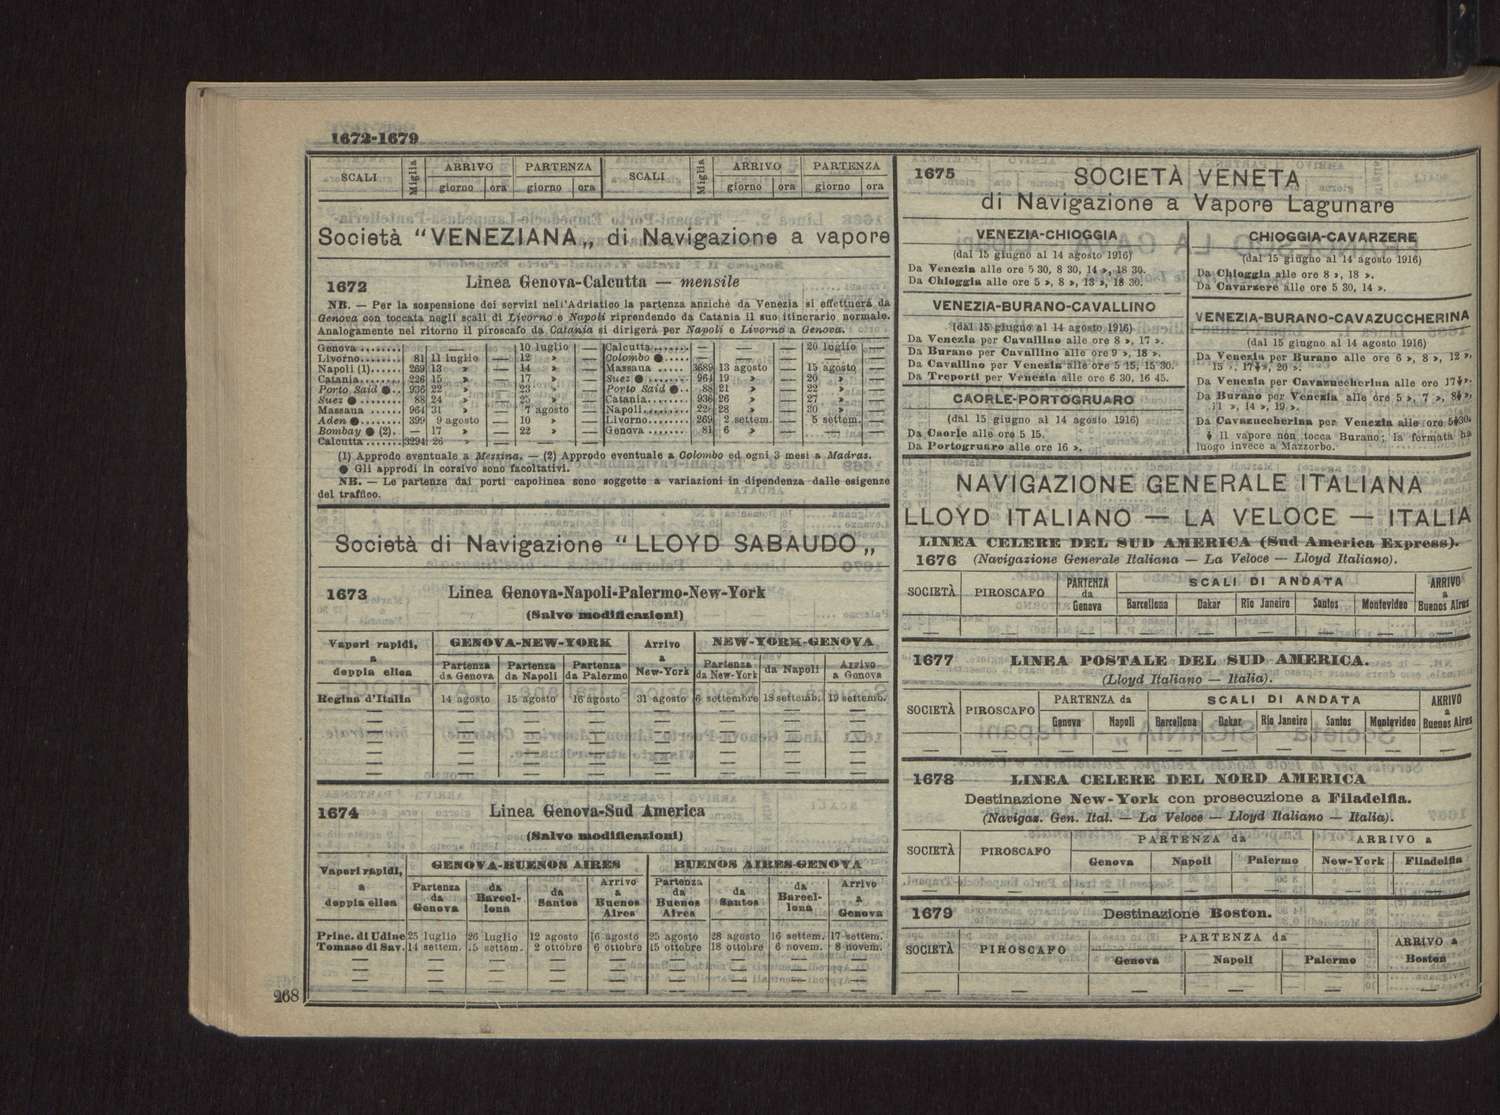 1672-1679
SCALI Miglia ARRIVO PARTENZA SCALI Miglia ARRIVO PARTENZA
giorno ora giorno ora giorno ora giorno ora
Società “VENEZIANA„ di Navigazione a vapore
1672 Linea Genova-Calcutta — mensile
NB. — Per la sospensione dei servizi nell'Adriatico la partenza anzichè da Venezia si effettuerà da
Genova con toccata negli scali di Livorno e Napoli riprendendo da Catania il suo itinerario normale.
Analogamente nel ritorno il piroscafo da Catania si dirigerà per Napoli e Livorno a Genova.
Genova ........ 10 luglio — Calcutta....... — — — 20 luglio —
Livorno........ 81 11 luglio — 12 » — Colombo ●.... — — — — —
Napoli (1)...... 269 13 » — 14 » — Massaua ..... 3689 13 agosto — 15 agosto —
Catania........ 226 15 » — 17 » — Suez ● ....... 964 19 » — 20 » —
Porto Said ● .. 936 22 » — 23 » — Porto Said ● .. 88 21 » — 22 » —
Suez ● ........ 88 24 » — 25 » — Catania....... 936 26 » — 27 » —
Massaua ...... 964 31 » — 7 agosto — Napoli........ 226 28 » — 30 » —
Aden ● ........ 399 9 agosto — 10 » — Livorno....... 269 2 settem. — 5 settem. —
Bombay ● (2). — 17 » — 22 » — Genova ....... 81 6 » — — —
Calcutta ...... 3294 26 » — — —
(1) Approdo eventuale a Messina. — (2) Approdo eventuale a Colombo ed ogni 3 mesi a Madras.
● Gli approdi in corsivo sono facoltativi.
NB. — Le partenze dai porti capolinea sono soggette a variazioni in dipendenza dalle esigenze
del traffico.
Società di Navigazione “LLOYD SABAUDO„
1673 Linea Genova-Napoli-Palermo-New-York
(Salvo modificazioni)
Vapori rapidi, a doppia elica GENOVA-NEW-YORK Arrivo a New-York NEW-YORK-GENOVA
Partenza da Genova Partenza da Napoli Partenza da Palermo Partenza da New-York da Napoli Arrivo a Genova
Regina d'Italia 14 agosto 15 agosto 16 agosto 31 agosto 6 settembre 18 settemb. 19 settemb.
1674 Linea Genova-Sud America
(Salvo modificazioni)
Vapori rapidi, a doppia elica GENOVA-BUENOS AIRES BUENOS AIRES-GENOVA
Partenza da Genova da Barcellona da Santos Arrivo a Buenos Aires Partenza da Buenos Aires da Santos da Barcellona Arrivo a Genova
Princ. di Udine 25 luglio 26 luglio 12 agosto 16 agosto 25 agosto 28 agosto 16 settem. 17 settem.
Tomaso di Sav. 14 settem. 15 settem. 2 ottobre 6 ottobre 15 ottobre 18 ottobre 6 novem. 8 novem.
268
1675 SOCIETÀ VENETA
di Navigazione a Vapore Lagunare
VENEZIA-CHIOGGIA
(dal 15 giugno al 14 agosto 1916)
Da Venezia alle ore 5 30, 8 30, 14 », 18 30.
Da Chioggia alle ore 5 », 8 », 13 », 18 30.
VENEZIA-BURANO-CAVALLINO
(dal 15 giugno al 14 agosto 1916)
Da Venezia per Cavallino alle ore 8 », 17 ».
Da Burano per Cavallino alle ore 9 », 18 ».
Da Cavallino per Venezia alle ore 5 15, 15 30.
Da Treporti per Venezia alle ore 6 30, 16 45.
CAORLE-PORTOGRUARO
(dal 15 giugno al 14 agosto 1916)
Da Caorle alle ore 5 15.
Da Portogruaro alle ore 16 ».
CHIOGGIA-CAVARZERE
(dal 15 giugno al 14 agosto 1916)
Da Chioggia alle ore 8 », 18 ».
Da Cavarzere alle ore 5 30, 14 ».
VENEZIA-BURANO-CAVAZUCCHERINA
(dal 15 giugno al 14 agosto 1916)
Da Venezia per Burano alle ore 6 », 8 », 12 »,
15 », 17⸸», 20 ».
Da Venezia per Cavazuccherina alle ore 17⸸».
Da Burano per Venezia alle ore 5 », 7 », 8⸸»,
11 », 14 », 19 ».
Da Cavazuccherina per Venezia alle ore 5⸸30.
⸸ Il vapore non tocca Burano; la fermata ha
luogo invece a Mazzorbo.
NAVIGAZIONE GENERALE ITALIANA
LLOYD ITALIANO — LA VELOCE — ITALIA
LINEA CELERE DEL SUD AMERICA (Sud America Express).
1676 (Navigazione Generale Italiana — La Veloce — Lloyd Italiano).
SOCIETÀ PIROSCAFO PARTENZA da Genova SCALI DI ANDATA ARRIVO a Buenos Aires
Barcellona Dakar Rio Janeiro Santos Montevideo
1677 LINEA POSTALE DEL SUD AMERICA.
(Lloyd Italiano — Italia).
SOCIETÀ PIROSCAFO PARTENZA da SCALI DI ANDATA ARRIVO a Buenos Aires
Genova Napoli Barcellona Dakar Rio Janeiro Santos Montevideo
1678 LINEA CELERE DEL NORD AMERICA
Destinazione New-York con prosecuzione a Filadelfia.
(Navigaz. Gen. Ital. — La Veloce — Lloyd Italiano — Italia).
SOCIETÀ PIROSCAFO PARTENZA da ARRIVO a
Genova Napoli Palermo New-York Filadelfia
1679 Destinazione Boston.
SOCIETÀ PIROSCAFO PARTENZA da ARRIVO a Boston
Genova Napoli Palermo